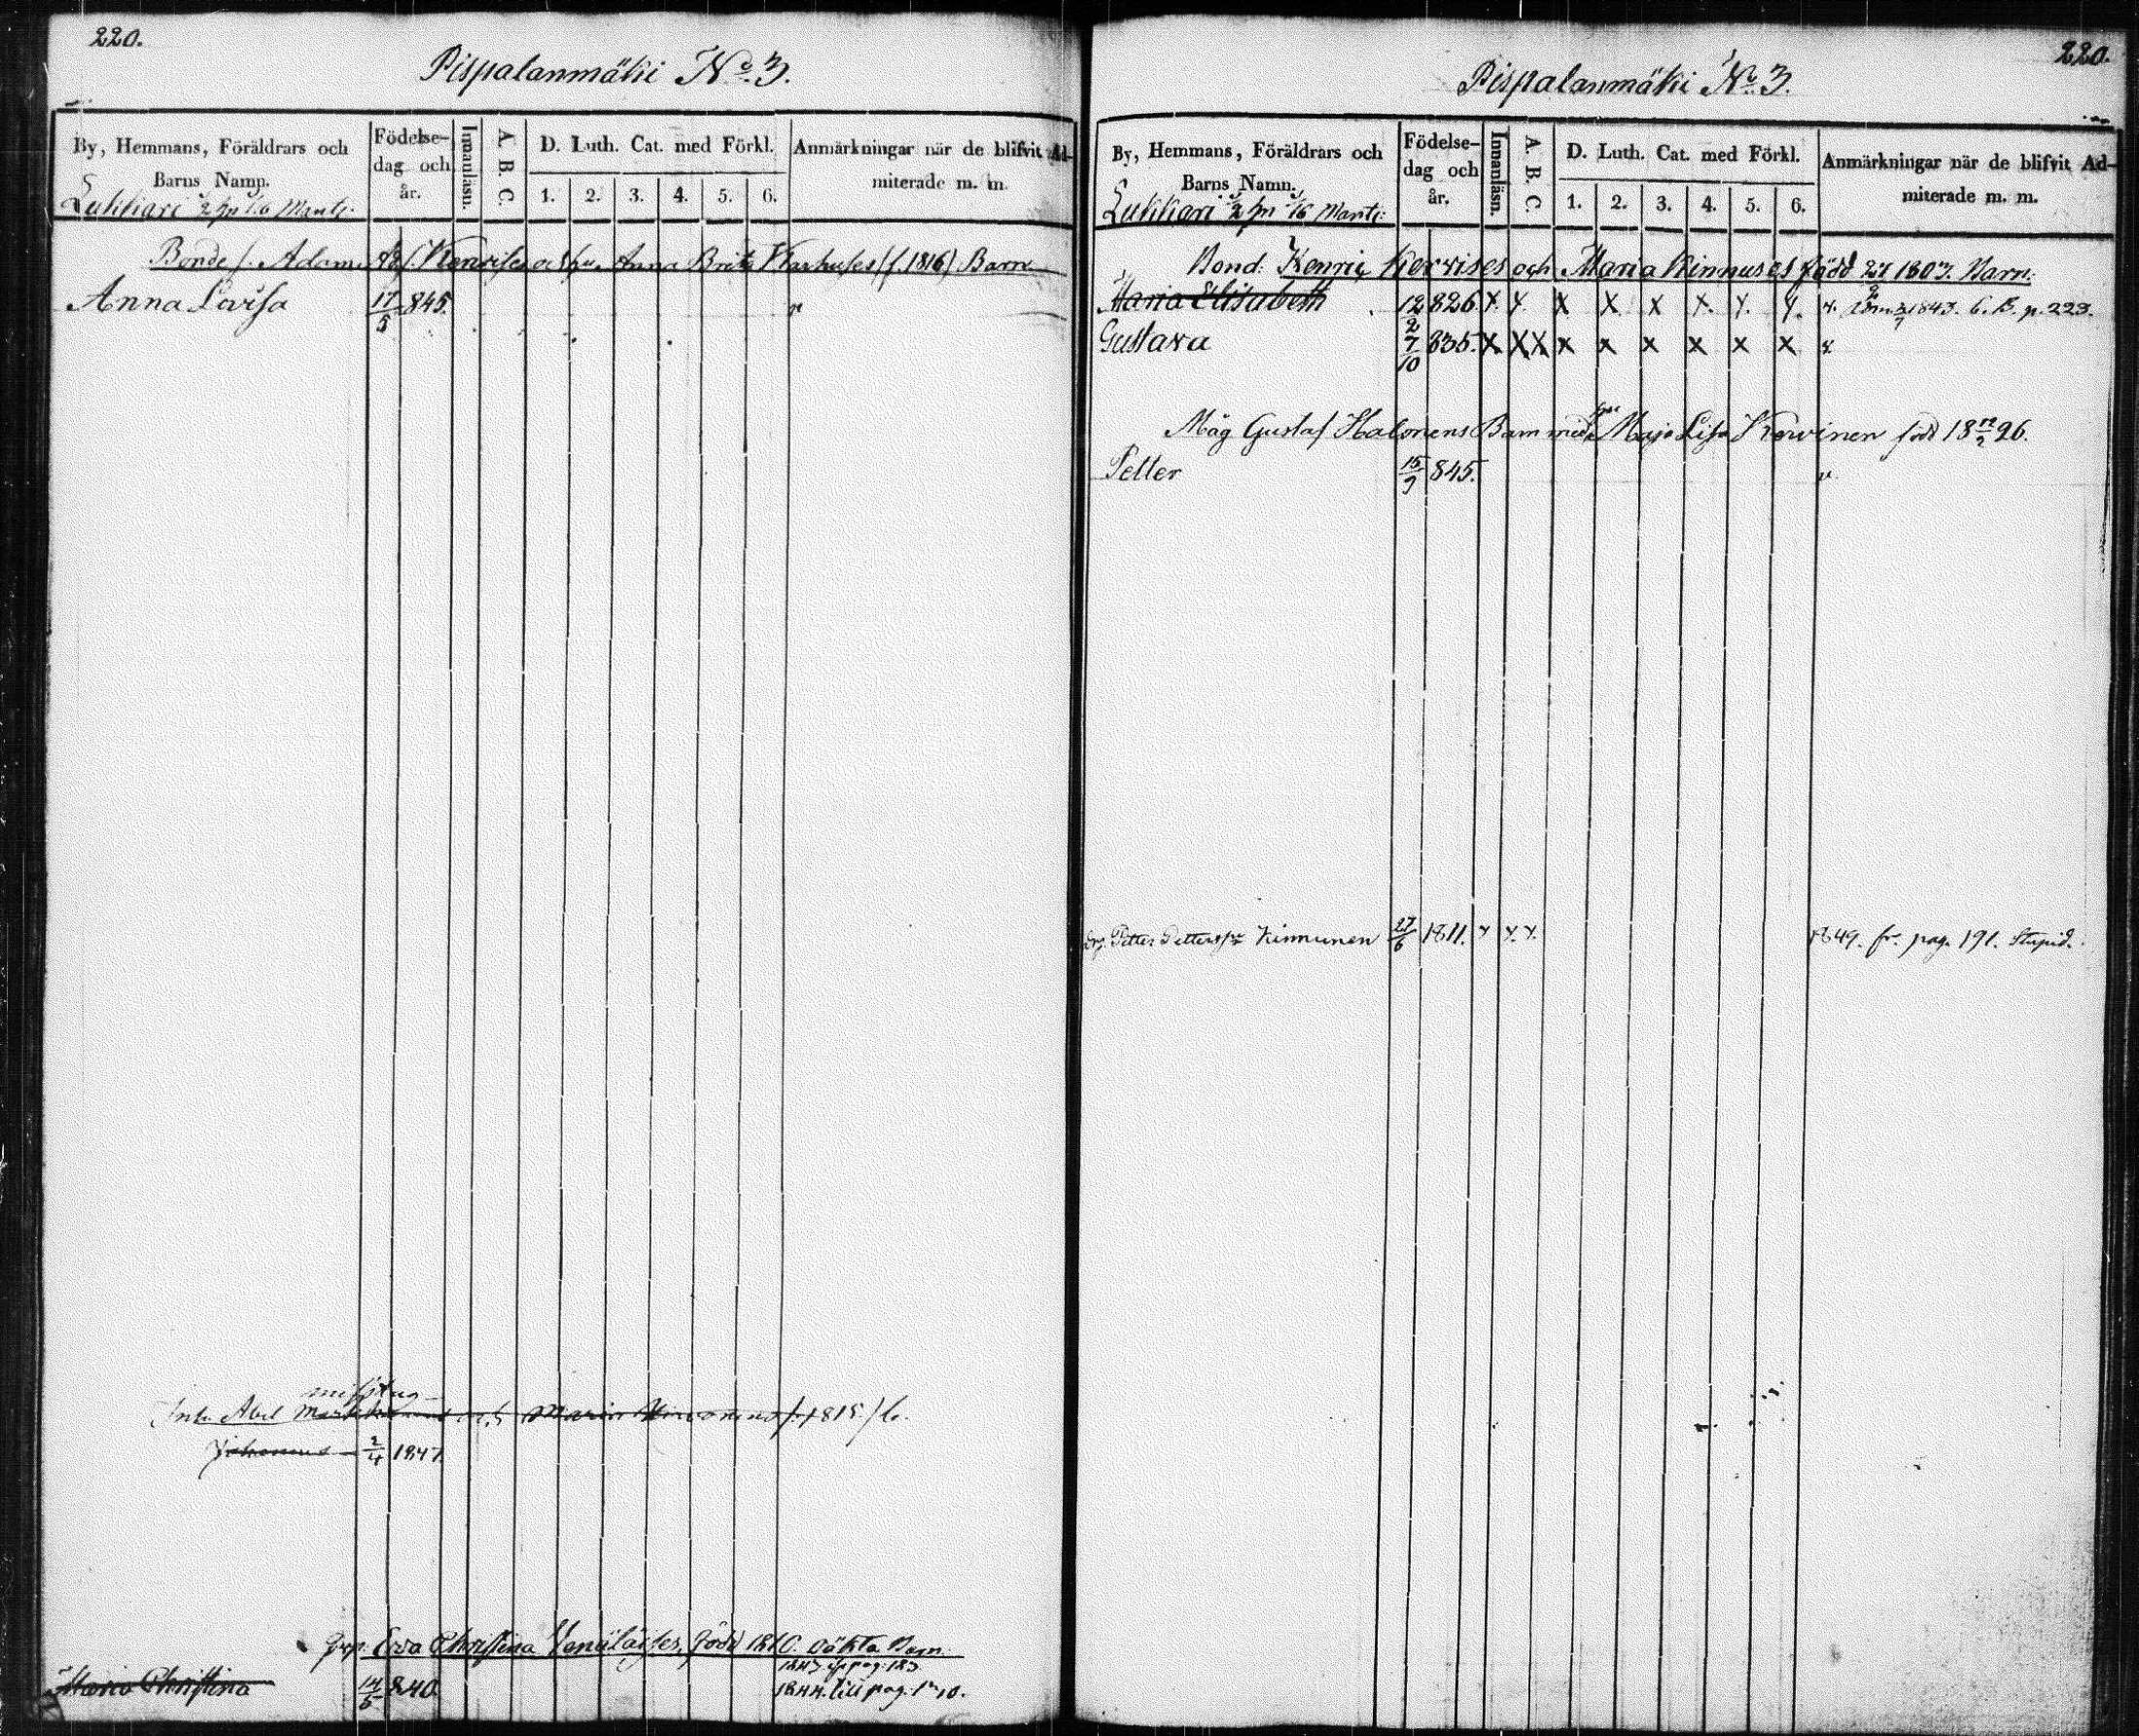 220.
Pispalanmäki No. 3.
By, Hemmans, Föräldrars och Barns Namn.
Födelse-dag och år.
Innanläsn.
A. B. C.
D. Luth. Cat. med Förkl.
1. 2. 3. 4. 5. 6.
Anmärkningar när de blifvit Ad-miterade m. m.
Lukkari 1/2 1/6 Mantz.
Bonde s. Adam och hu. Anna Brita Karhuses (f. 1816) Barn
Anna Lovisa 17/5 845.
Inh. Abel och Maria (f. 1815) b.
Johannes 2/4 1847.
Eva Christina född 1810. oäkta Barn.
1843 pag. 183
Maria Christina 14/5 840. 1844. till pag.
220.
Pispalanmäki No. 3.
By, Hemmans, Föräldrars och Barns Namn.
Födelse-dag och år.
Innanläsn.
A. B. C.
D. Luth. Cat. med Förkl.
1. 2. 3. 4. 5. 6.
Anmärkningar när de blifvit Ad-miterade m. m.
Lukkari 1/2 1/6 Mantz:
Bond: Henric Kervises och Maria Kinnuses född 1803. Barn:
Maria Elisabeth 12/2 826. x x x x x x x x x. 1843. C. B. p. 223.
Gustava 7/10 835. x x x x x x x x x x
Måg Gustaf Halonens Barn med hu Maja Lisa Kervinen född 18 12/2 26.
Petter 15/9 845.
Petter Petterss Kinnunen 27/6 1811. x x. x. 1849. fr. pag. 191. Stupid.